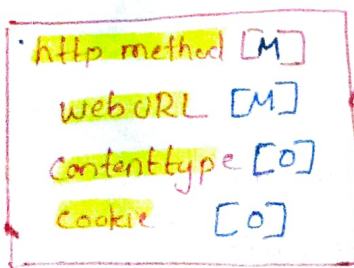 http method [M]
web URL [M]
Contenttype [O]
cookie [O]